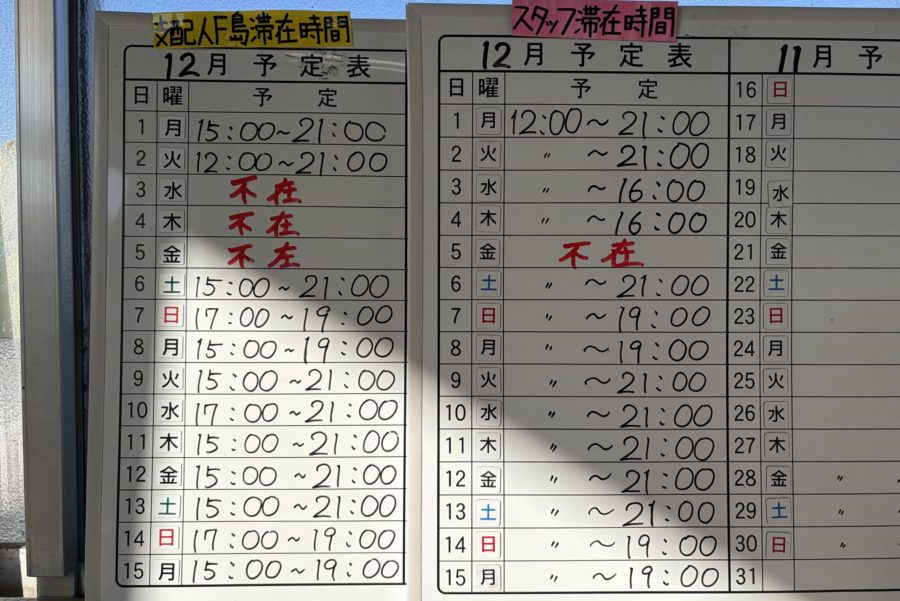 支配人F島滞在時間
12月 予定表
日 曜 予定
1 月 15:00~21:00
2 火 12:00~21:00
3 水 不在
4 木 不在
5 金 不在
6 土 15:00~21:00
7 日 17:00~19:00
8 月 15:00~19:00
9 火 15:00~21:00
10 水 17:00~21:00
11 木 15:00~21:00
12 金 15:00~21:00
13 土 15:00~21:00
14 日 17:00~19:00
15 月 15:00~19:00
スタッフ滞在時間
12月 予定表
日 曜 予定
1 月 12:00~21:00
2 火 〃 ~21:00
3 水 〃 ~16:00
4 木 〃 ~16:00
5 金 不在
6 土 〃 ~21:00
7 日 〃 ~19:00
8 月 〃 ~19:00
9 火 〃 ~21:00
10 水 〃 ~21:00
11 木 〃 ~21:00
12 金 〃 ~21:00
13 土 〃 ~21:00
14 日 〃 ~19:00
15 月 〃 ~19:00
11月 予
16 日
17 月
18 火
19 水
20 木
21 金
22 土
23 日
24 月
25 火
26 水
27 木
28 金 〃
29 土 〃
30 日 〃
31